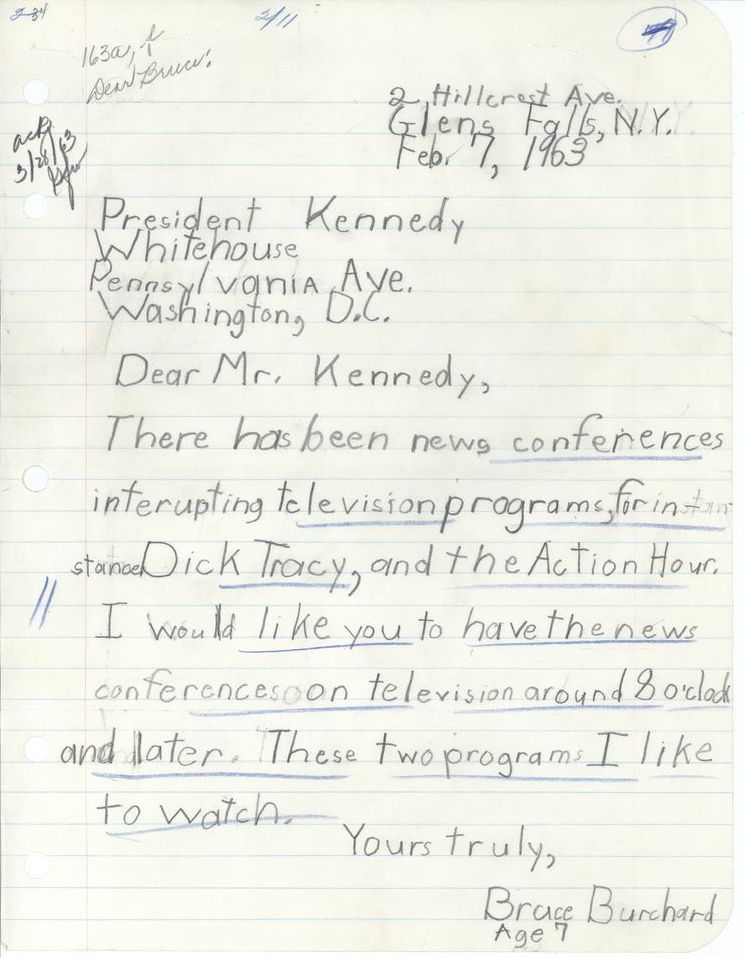 2/11
163a, f
Dear Bruce:
ack
3/28/63
2 Hillcrest Ave.
Glens Falls, N.Y.
Feb. 7, 1963
President Kennedy
Whitehouse
Pennsylvania Ave.
Washington, D.C.
Dear Mr. Kennedy,
There has been news conferences
interupting television programs, for in
stance Dick Tracy, and the Action Hour.
I would like you to have the news
conferences on television around 8 o'clock
and later. These two programs I like
to watch.
Yours truly,
Bruce Burchard
Age 7